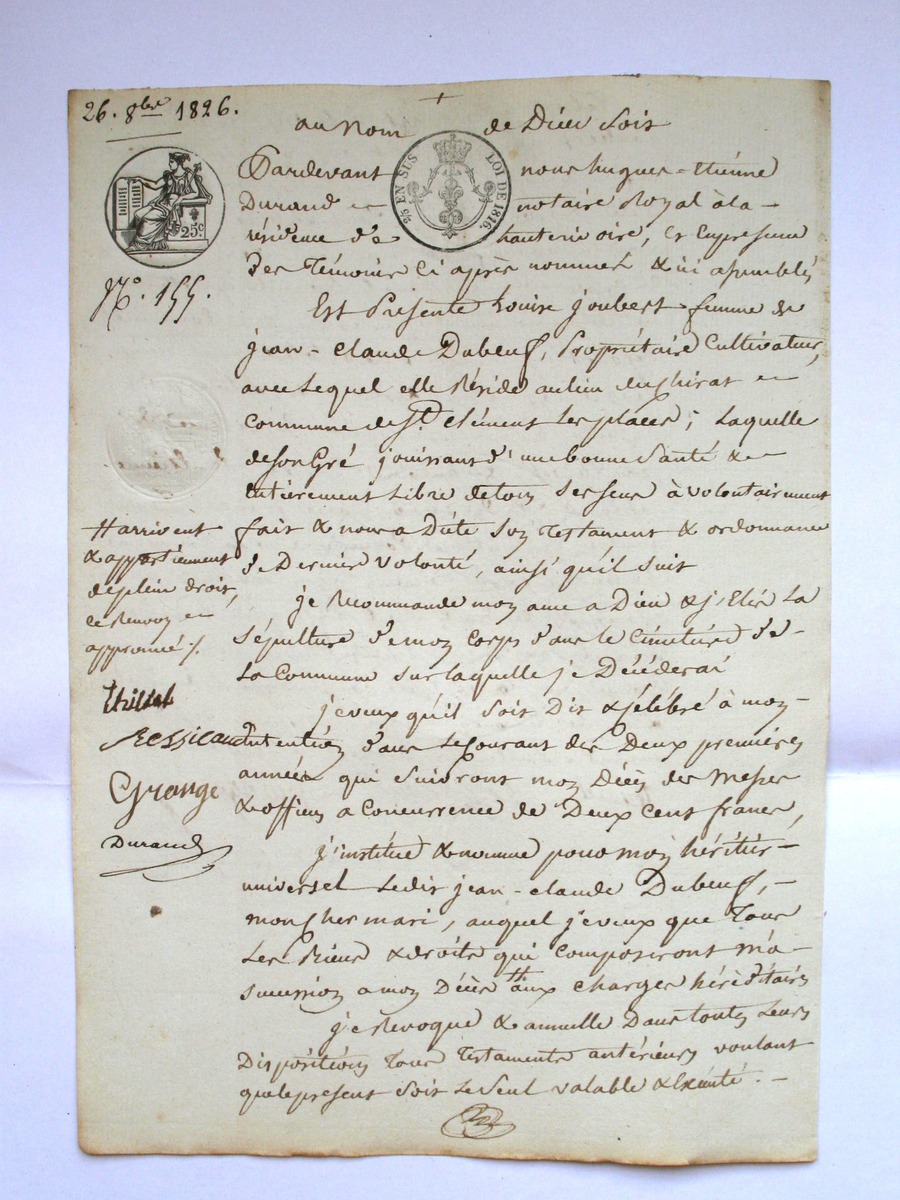 26. 8bre 1826.
au Nom de Dieu soit
Pardevant nous hugues-Etiénne
Durand notaire Royal à la
résidence de hauterivoire, & en présence
des témoins ci après nommés & ici assemblés
Est Présente Louise joubert femme de
jean-claude Dubeuf, Propriétaire Cultivateur,
avec Lequel elle Réside au lieu du chirat
commune de St. clément Les places; Laquelle
de son Gré jouissant d'une bonne Santé &
Entièrement Libre de tous ses sens à volontairement
fait & nous a Dicté son testament & ordonnance
de Dernière volonté, ainsi qu'il suit
je Recommande mon ame a Dieu & j'Elis La
sépulture de mon corps dans le cimetière de
La Commune sur laquelle je Décéderai
je veux qu'il soit Dit & célébré à mon
intention dans le courant des Deux premières
années qui suivront mon Décès des Messes
& offices a Concurrence de Deux cent francs,
j'institue & nomme pour mon héritier
universel Ledit jean-claude Dubeuf,
mon cher mari, auquel je veux que tous
Les Biens & droits qui composeront ma
succession a mon Décès # aux charges héréditaires
je Revoque & annulle Dans toutes Leurs
Dispositions tous testaments antérieurs voulant
que le présent soit Le seul valable & Exécuté.
25 EN SUS LOI DE 1816.
25c.
No. 155.
# arrivent
& appartiennent
de plein droit,
ce Renvoy
approuvé /.
Grange
Durand